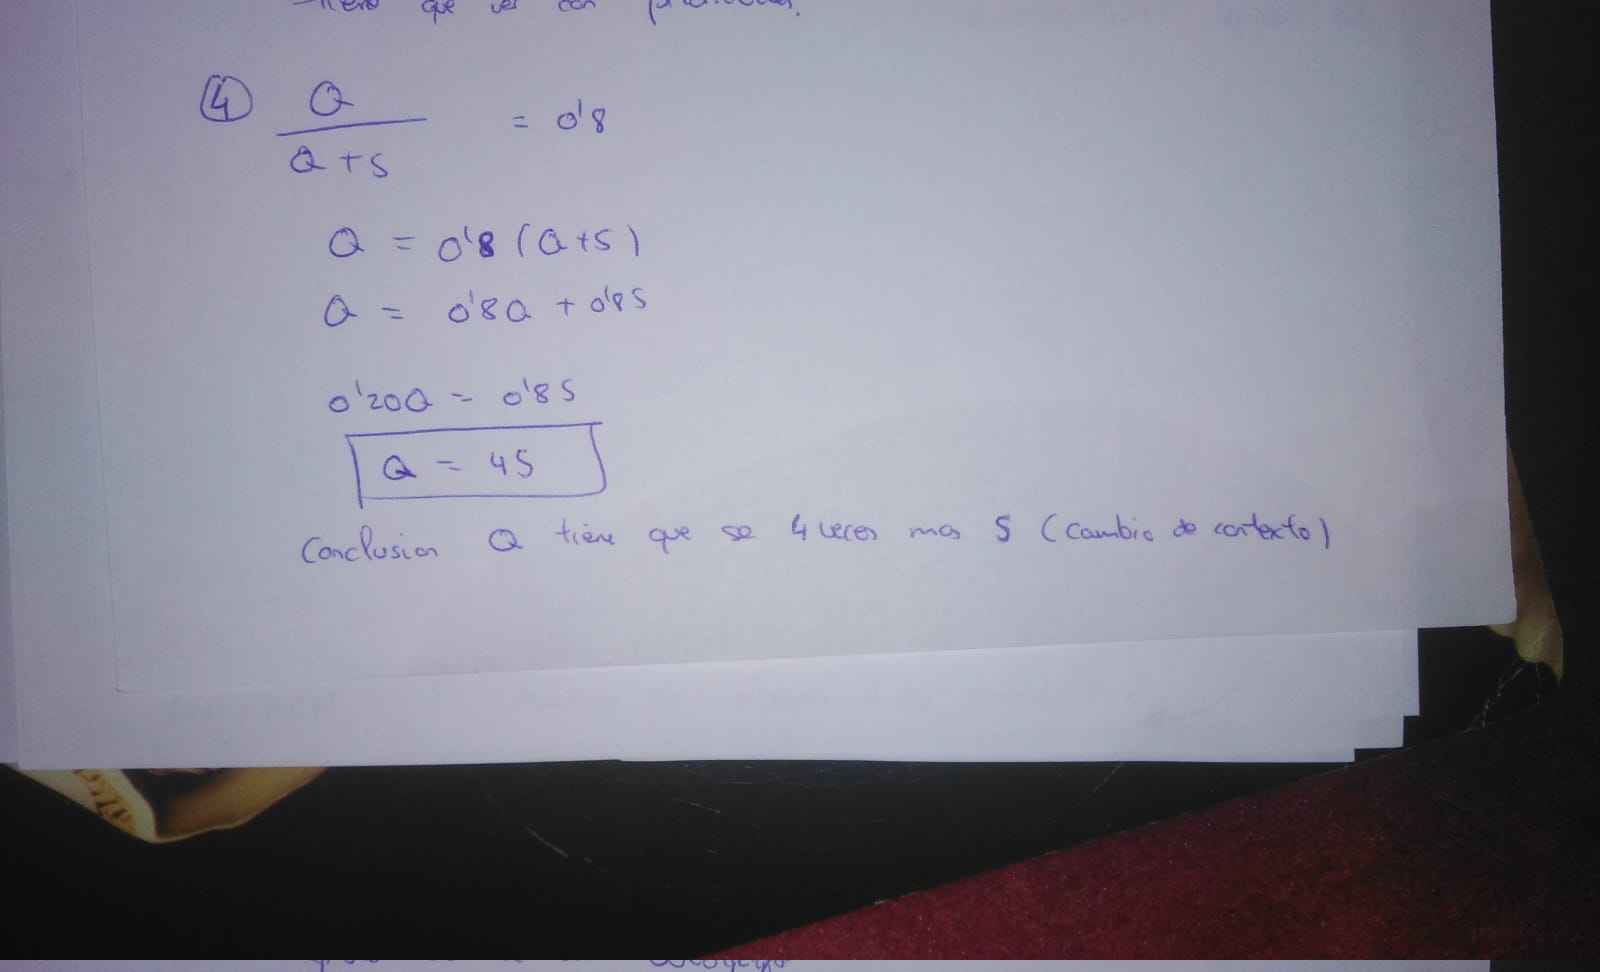 que ver con
④ Q
= 0'8
Q + S
Q = 0'8 (Q+S)
Q = 0'8Q + 0'8S
0'20Q = 0'8S
Q = 4S
Conclusion Q tiene que se 4 veces mas S (cambio de contexto)